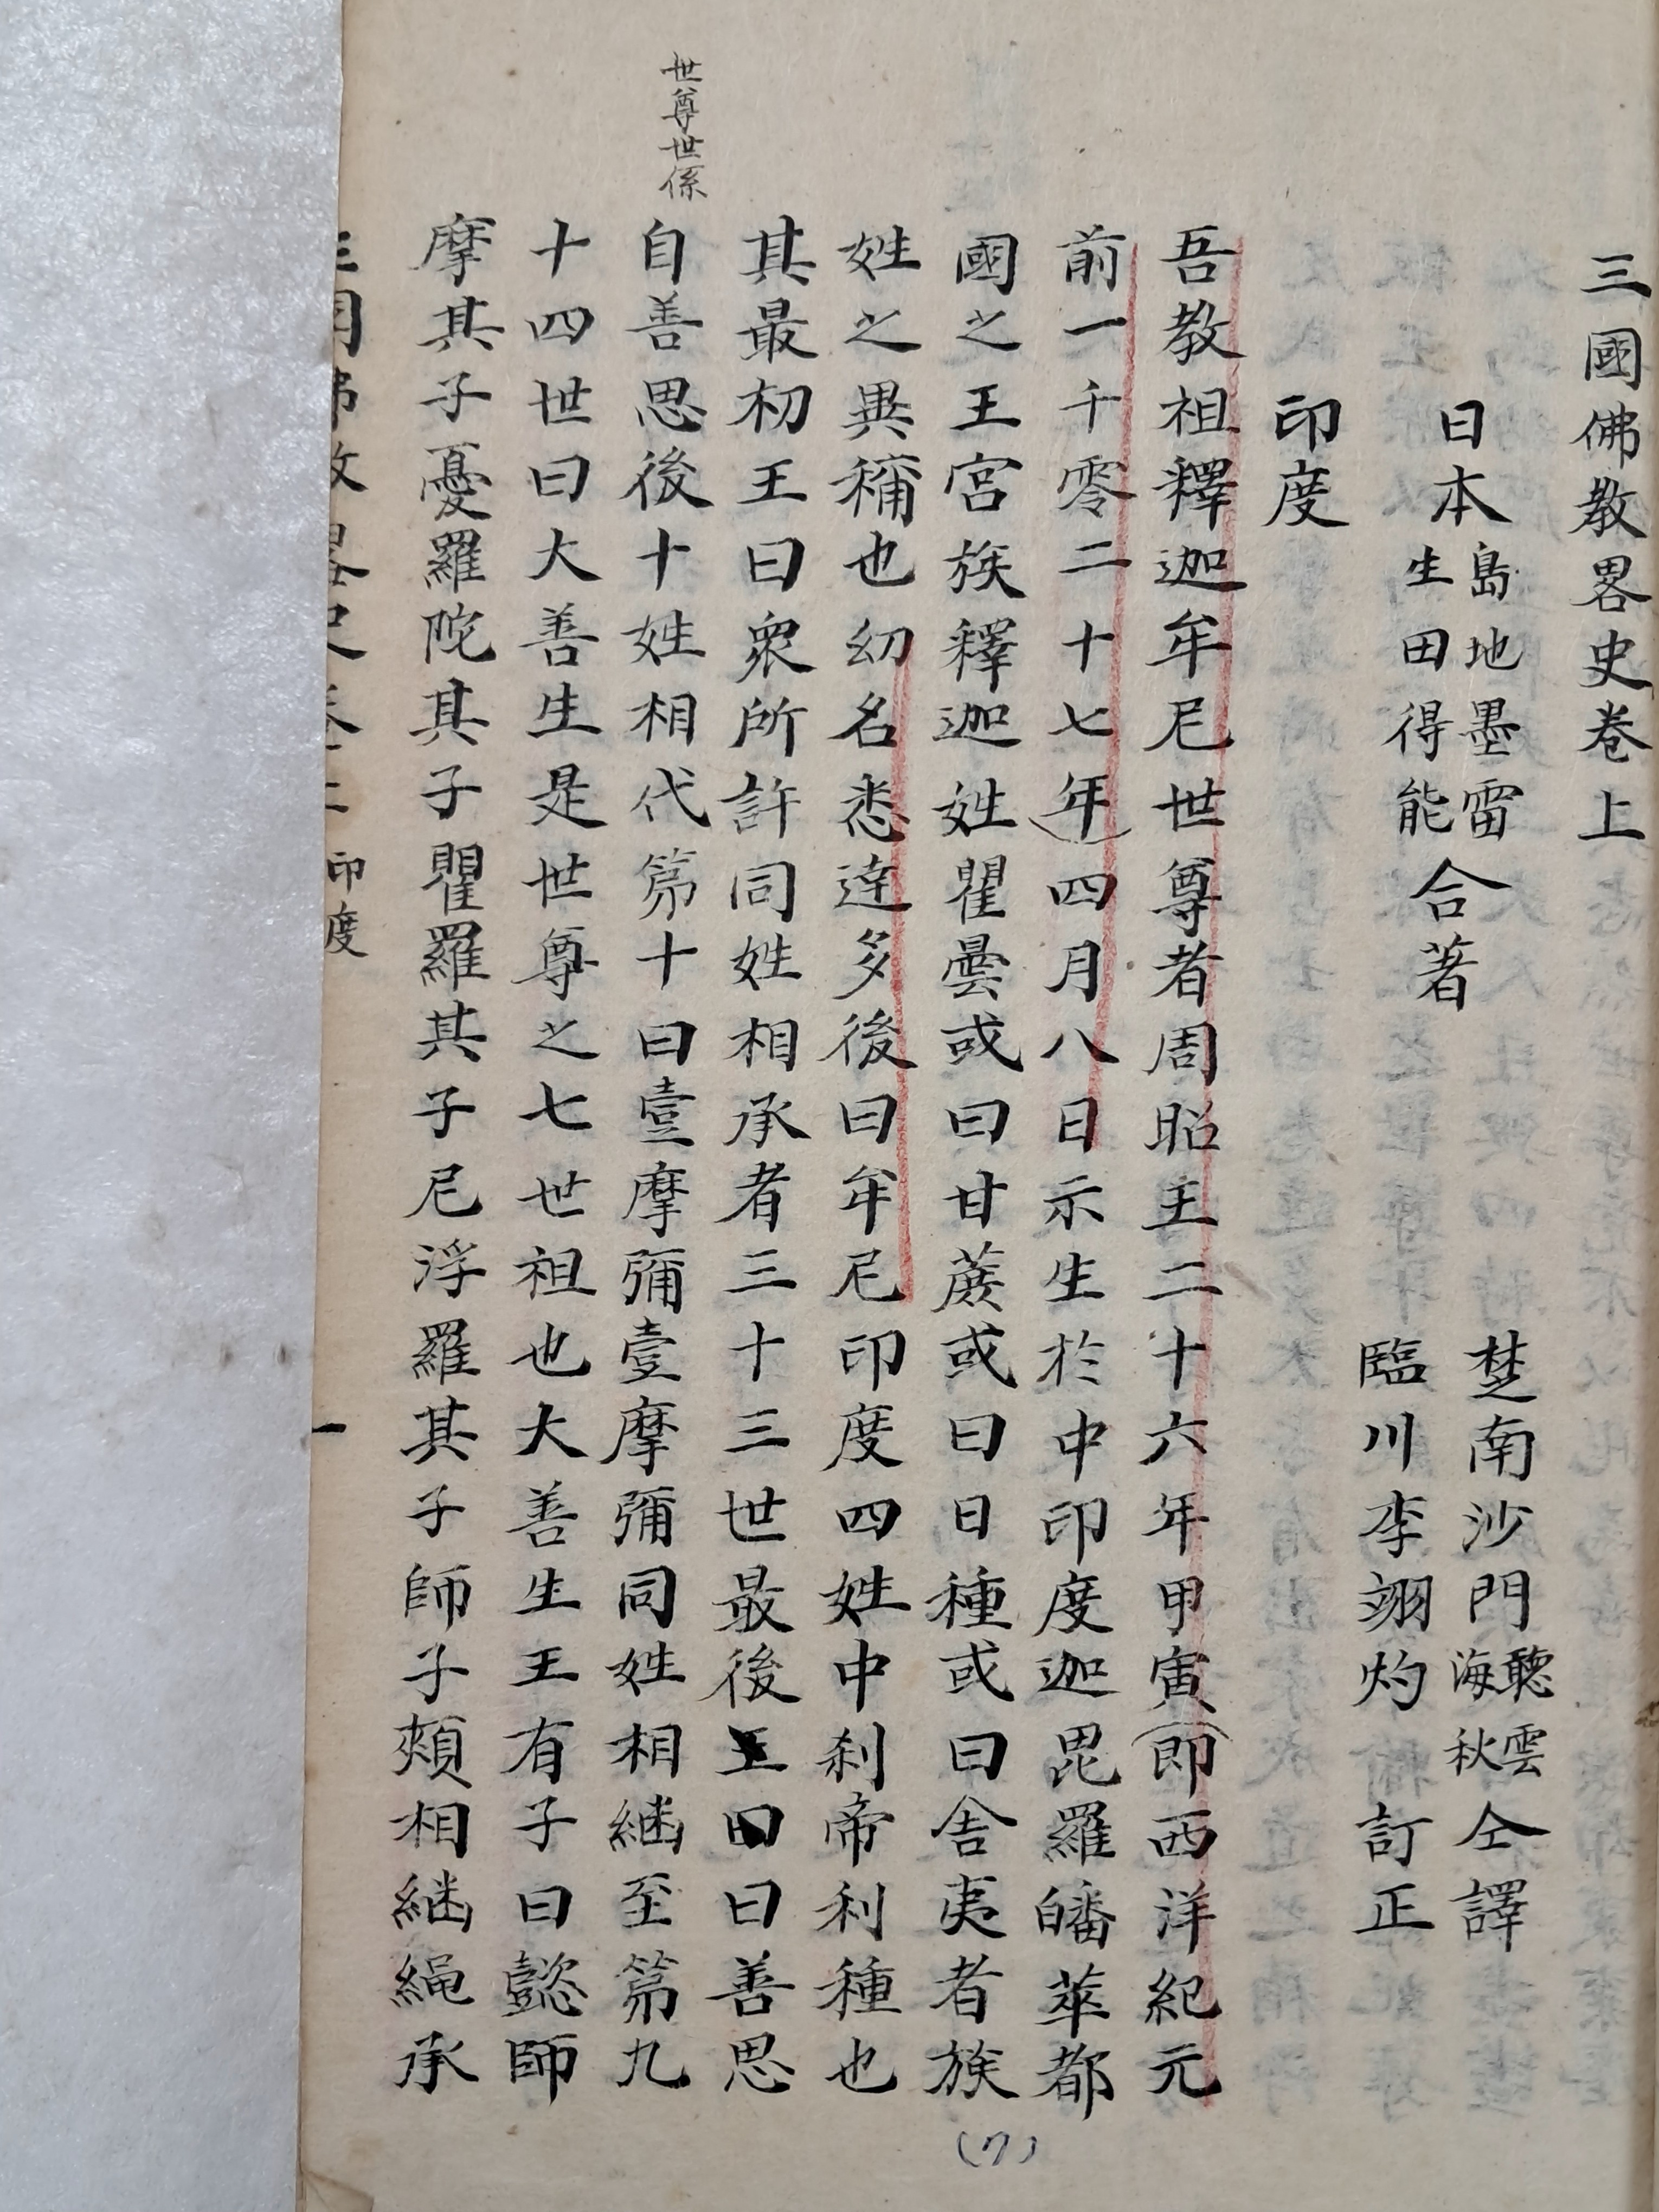 三國佛教畧史卷上
日本島地墨雷生田得能合著
楚南沙門聽雲海秋仝譯
臨川李翊灼訂正
印度
吾教祖釋迦牟尼世尊者周昭王二十六年甲寅(即西洋紀元
前一千零二十七年)四月八日示生於中印度迦毘羅皤萃都
國之王宮族釋迦姓瞿曇或曰甘蔗或曰日種或曰舍夷者族
姓之異稱也幼名悉達多後曰牟尼印度四姓中刹帝利種也
其最初王曰衆所許同姓相承者三十三世最後王曰善思
世尊世係
自善思後十姓相代第十曰壹摩彌壹摩彌同姓相継至第九
十四世曰大善生是世尊之七世祖也大善生王有子曰懿師
摩其子憂羅陀其子瞿羅其子尼浮羅其子師子頰相継繩承
三國佛教畧史卷上 印度
一
(7)